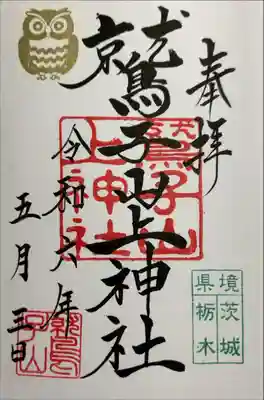 奉拝
鷲子山上神社
鷲子山上神社
令和六年
五月三日
境茨城
県栃木